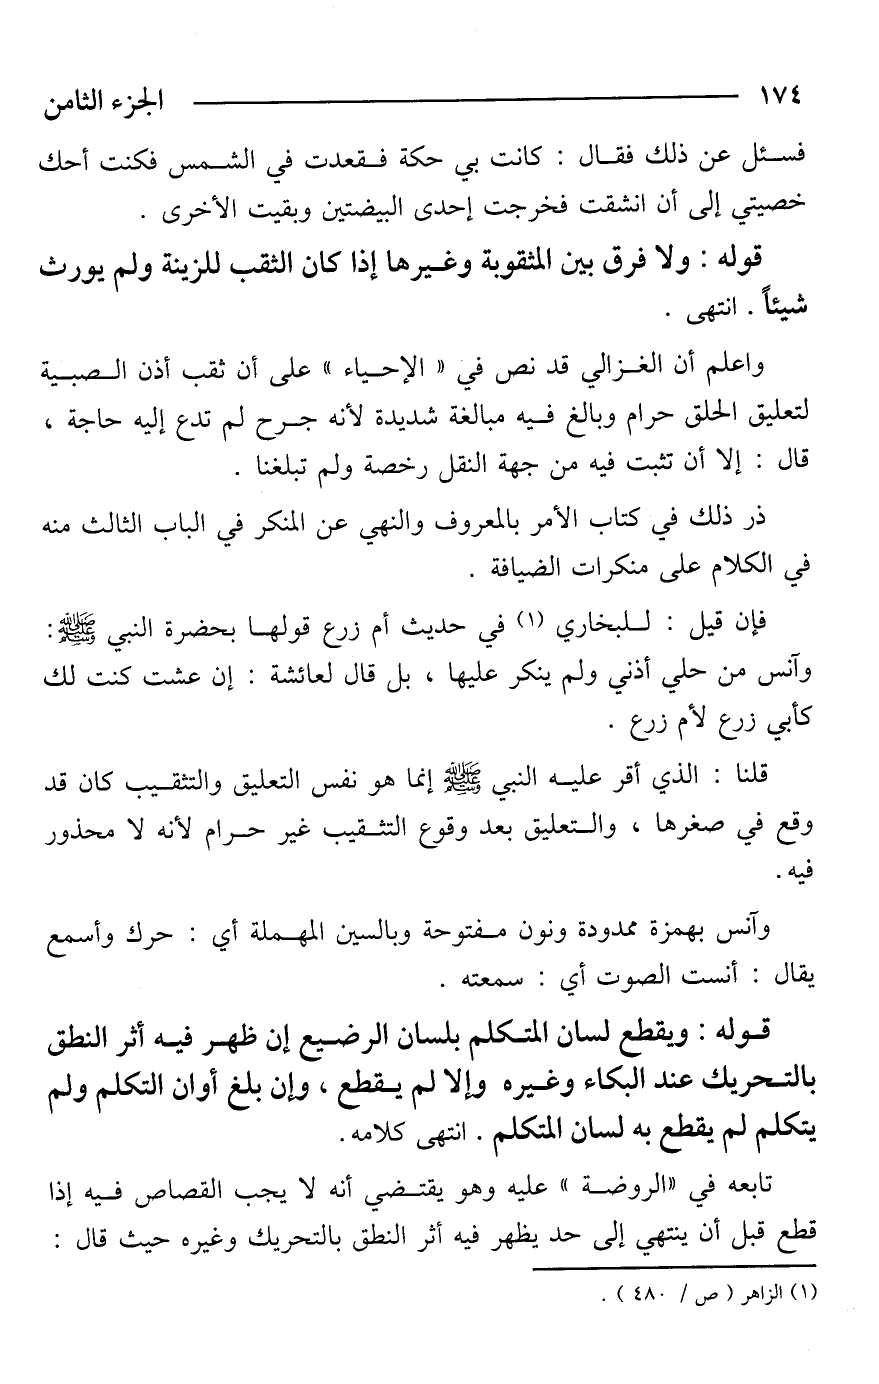 ١٧٤ الجزء الثامن
فسئل عن ذلك فقال : كانت بي حكة فقعدت في الشمس فكنت أحك
خصيتي إلى أن انشقت فخرجت إحدى البيضتين وبقيت الأخرى .
قوله : ولا فرق بين المثقوبة وغيرها إذا كان الثقب للزينة ولم يورث
شيئاً . انتهى .
واعلم أن الغزالي قد نص في « الإحياء » على أن ثقب أذن الصبية
لتعليق الحلق حرام وبالغ فيه مبالغة شديدة لأنه جرح لم تدع إليه حاجة ،
قال : إلا أن تثبت فيه من جهة النقل رخصة ولم تبلغنا .
ذر ذلك في كتاب الأمر بالمعروف والنهي عن المنكر في الباب الثالث منه
في الكلام على منكرات الضيافة .
فإن قيل : للبخاري (١) في حديث أم زرع قولها بحضرة النبي ﷺ :
وآنس من حلي أذني ولم ينكر عليها ، بل قال لعائشة : إن عشت كنت لك
كأبي زرع لأم زرع .
قلنا : الذي أقر عليه النبي ﷺ إنما هو نفس التعليق والتثقيب كان قد
وقع في صغرها ، والتعليق بعد وقوع التثقيب غير حرام لأنه لا محذور
فيه .
وآنس بهمزة ممدودة ونون مفتوحة وبالسين المهملة أي : حرك وأسمع
يقال : أنست الصوت أي : سمعته .
قوله : ويقطع لسان المتكلم بلسان الرضيع إن ظهر فيه أثر النطق
بالتحريك عند البكاء وغيره وإلا لم يقطع ، وإن بلغ أوان التكلم ولم
يتكلم لم يقطع به لسان المتكلم . انتهى كلامه .
تابعه في «الروضة » عليه وهو يقتضي أنه لا يجب القصاص فيه إذا
قطع قبل أن ينتهي إلى حد يظهر فيه أثر النطق بالتحريك وغيره حيث قال :
(١) الزاهر ( ص / ٤٨٠ ) .